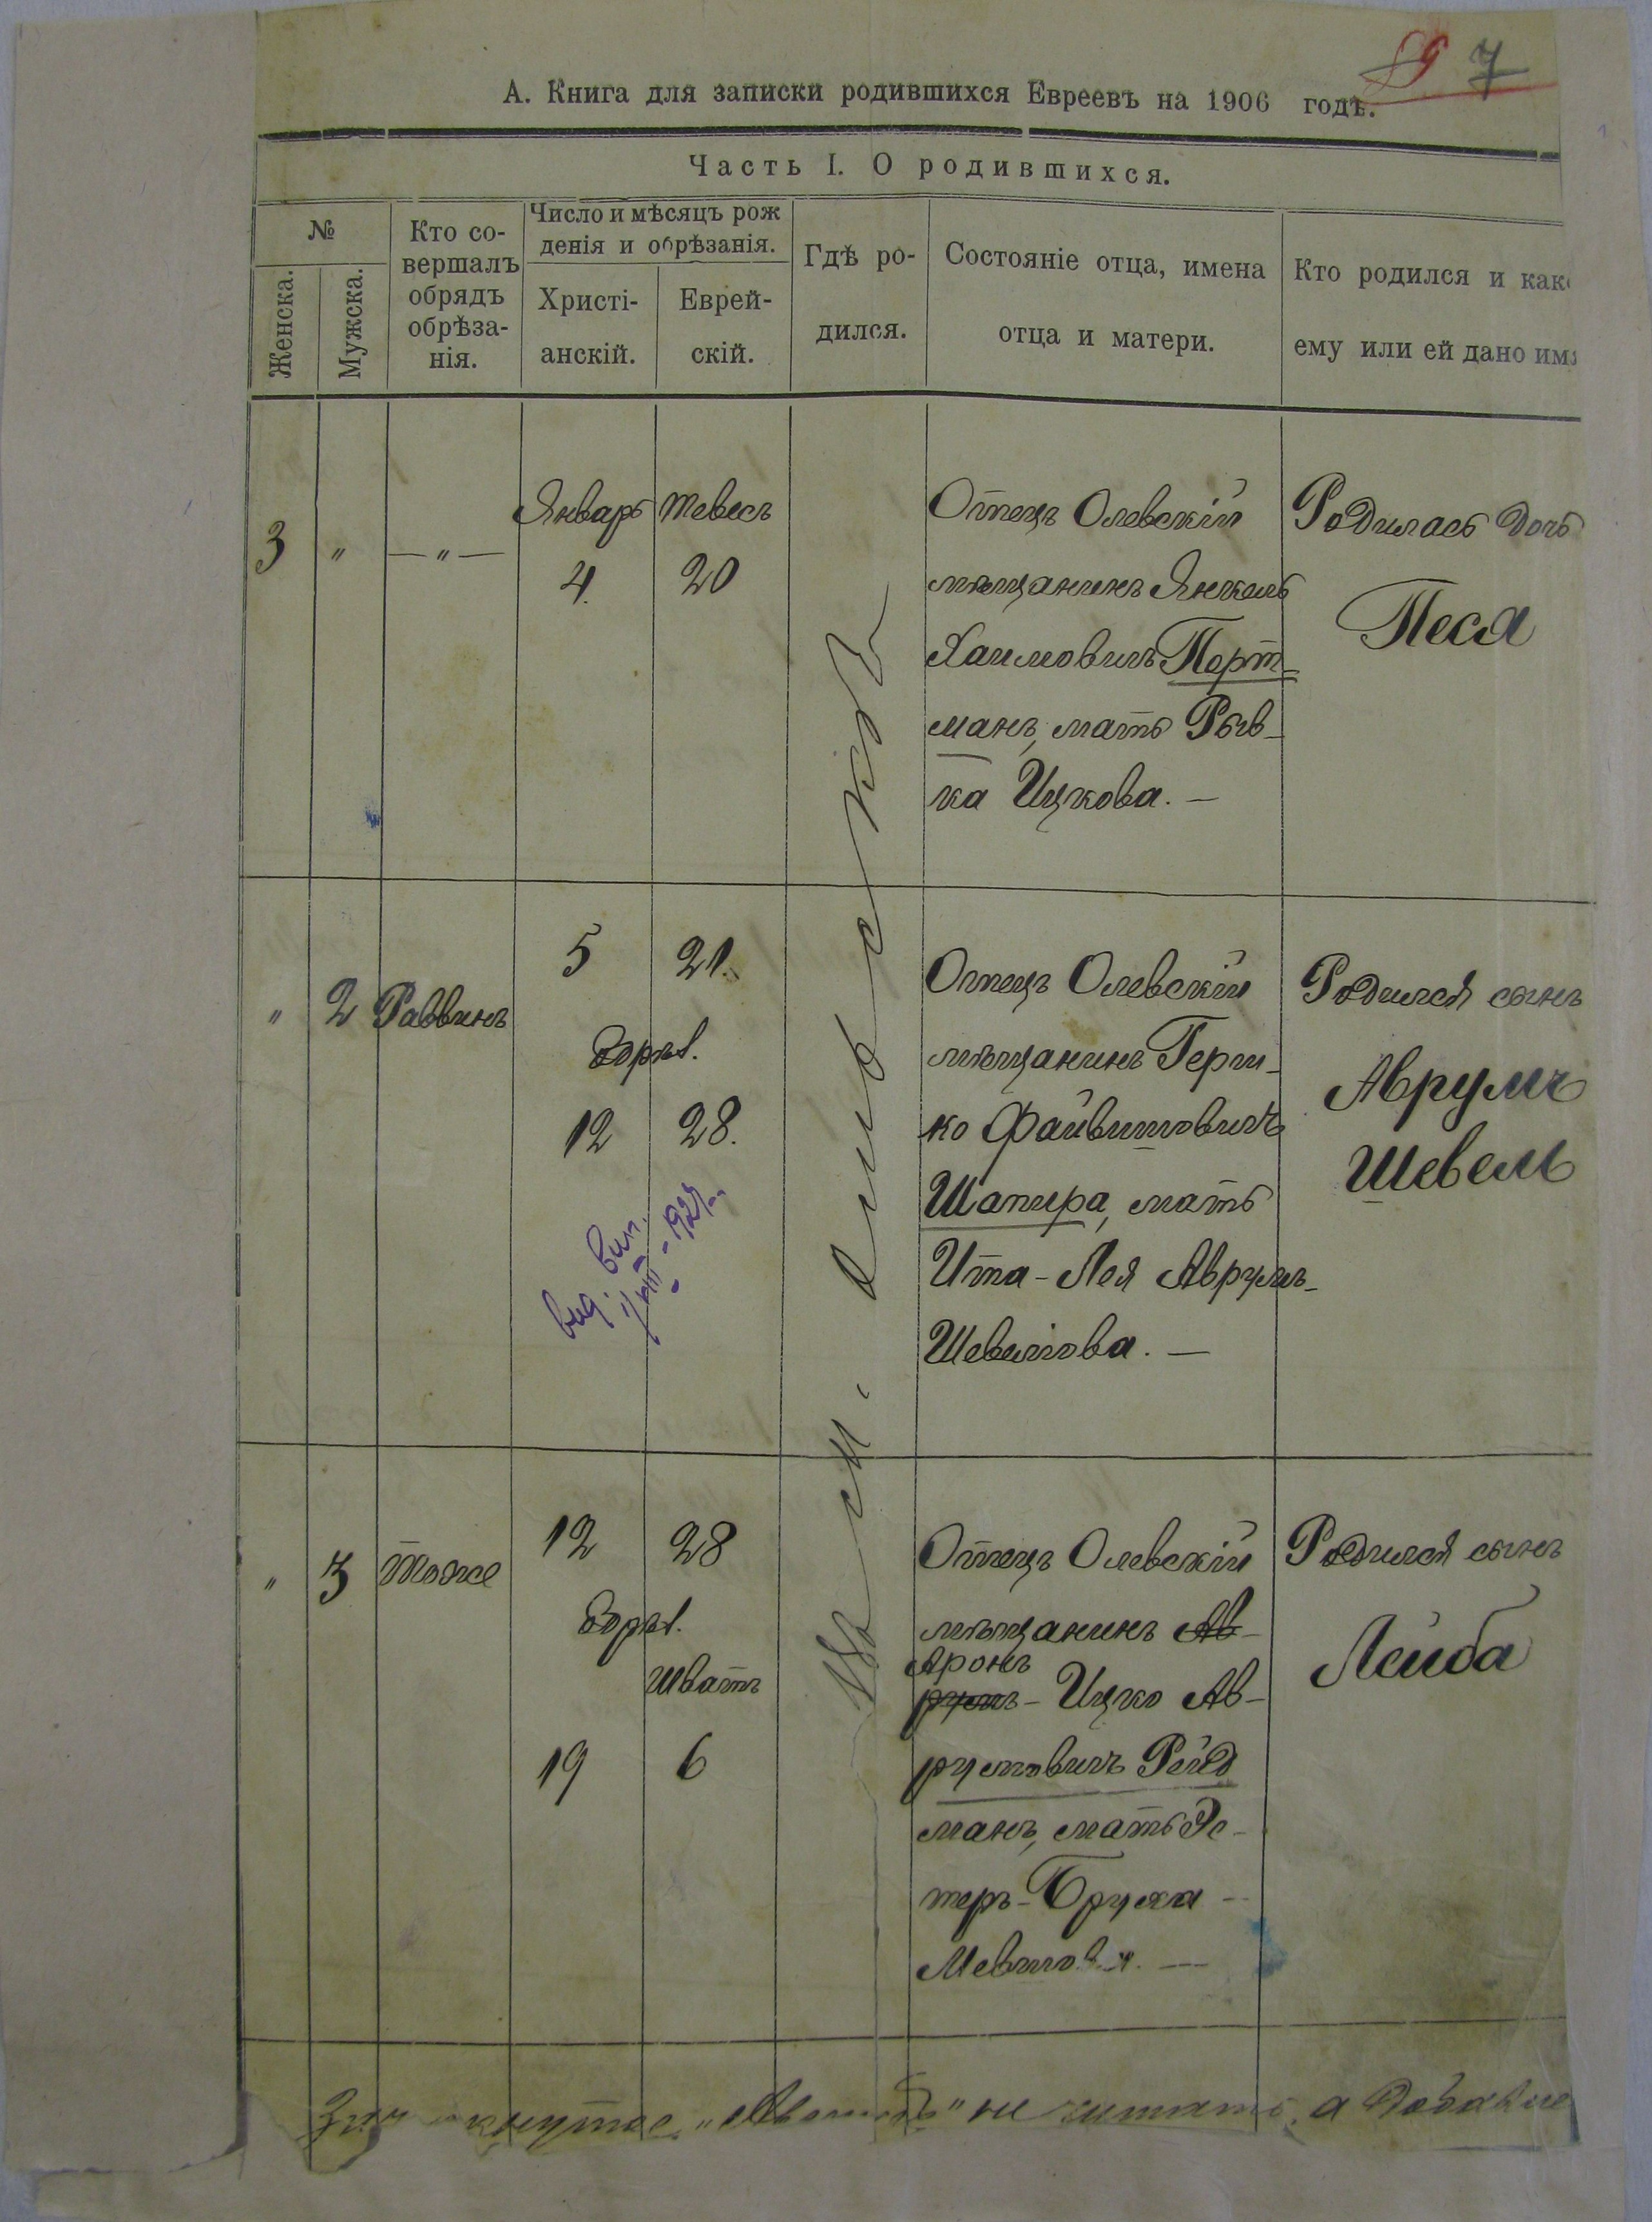 7
А. Книга для записки родившихся Евреевъ на 1906 годъ.
Часть I. О родившихся.
№
Женска.
Мужска.
Кто со-
вершалъ
обрядъ
обрѣза-
нія.
Число и мѣсяцъ рож
денія и обрѣзанія.
Христі-
анскій.
Еврей-
скій.
Гдѣ ро-
дился.
Состояніе отца, имена
отца и матери.
Кто родился и како
ему или ей дано имя
3 " — " —
Январь Тевесъ
4. 20
Отецъ Олевскій
мѣщанинъ Янкель
Хаимовичъ Порт=
манъ, мать Рыв-
ка Ицкова. —
Родилась дочь
Песя
" 2 Раввинъ
5 21.
12 28.
вид. вип.
Отецъ Олевскій
мѣщанинъ Герш-
ко Файвишовичъ
Шапира, мать
Ита-Лея Аврумъ-
Шевелюва. —
Родился сынъ
Аврумъ
Шевель
" 3 Тоже
12 28
Шватъ
19 6
Отецъ Олевскій
мѣщанинъ Ав-
Аронъ
румъ- Ицко Ав-
румовичъ Рейд
манъ, мать Эс-
теръ-Бруха -
Родился сынъ
Лейба
въ м.
" не читать, а